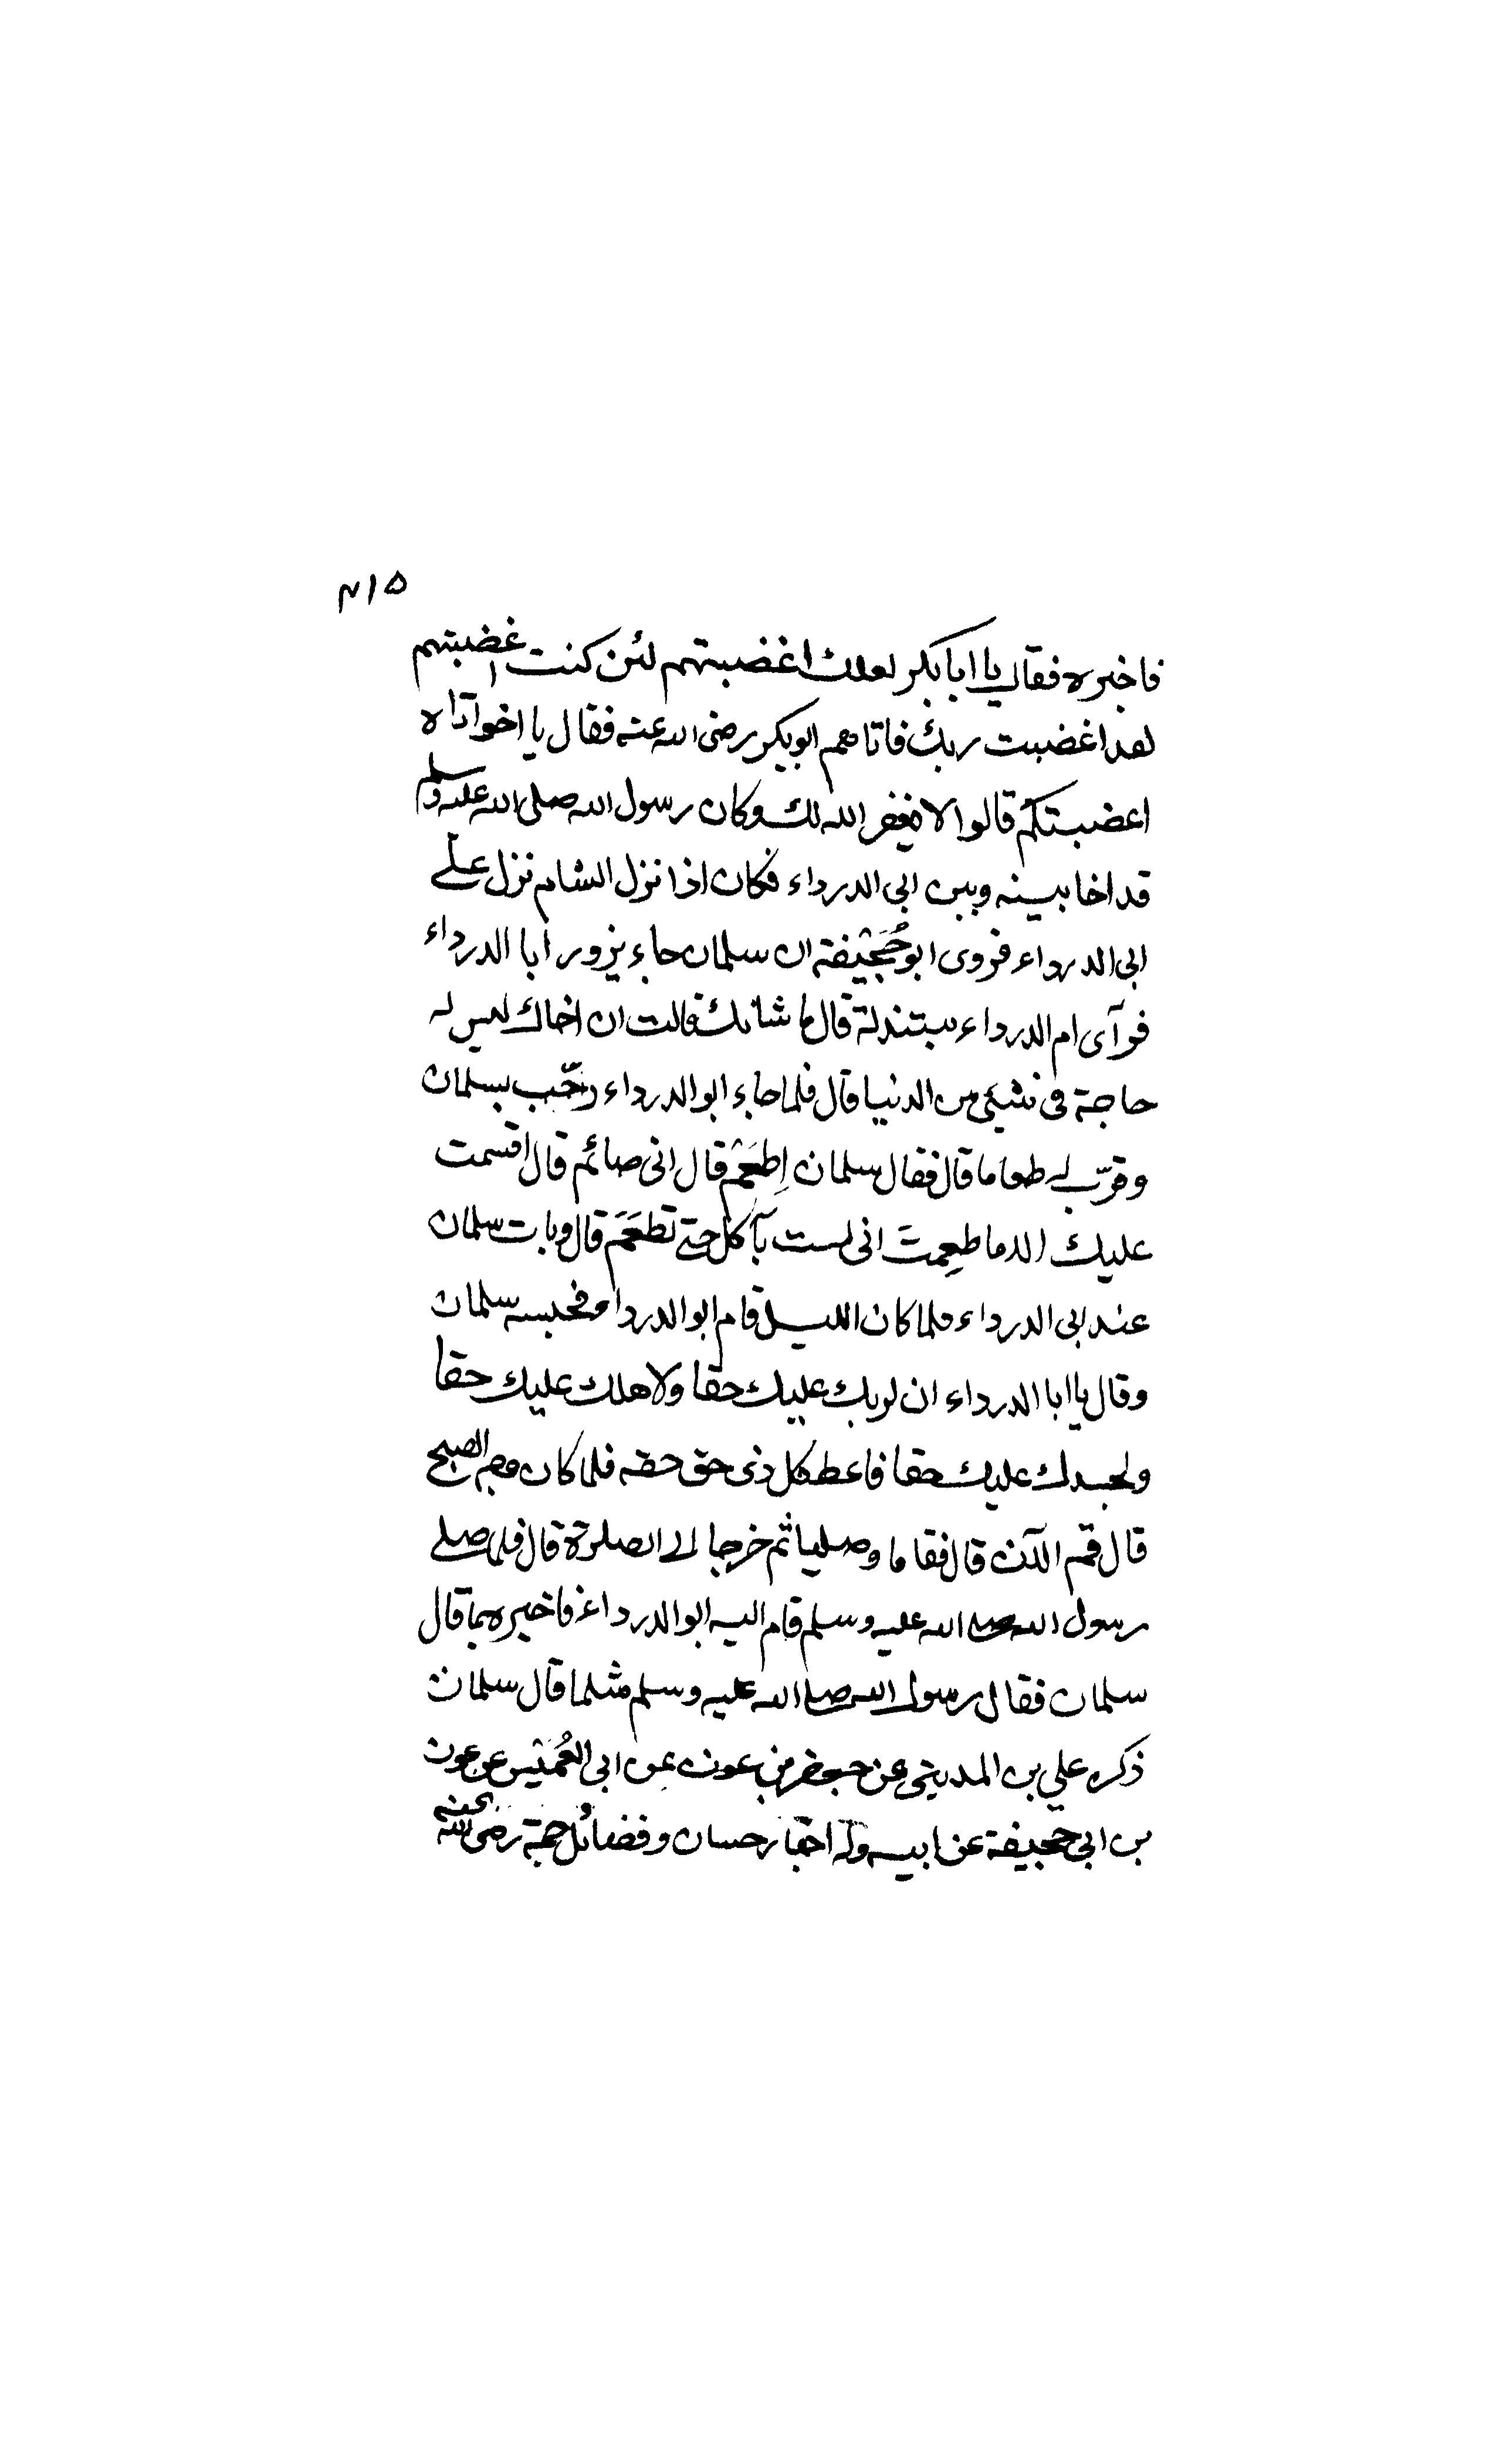 ٣١٥
فاخبره فقال يا ابا بكر لعلك اغضبتهم لئن كنت اغضبتهم
لقد اغضبت ربك فاتاهم ابو بكر رضى الله عنه فقال يا اخوتاه
اغضبتكم قالوا لا يغفر الله لك وكان رسول الله صلى الله عليه وسلم
قد اخا بينه وبين ابى الدرداء فكان اذا نزل الشام نزل على
ابى الدرداء فروى ابو جُحَيْفة ان سلمان جاء يزور ابا الدرداء
فرآى ام الدرداء مبتذلة قال ما شانك قالت ان اخاك ليس له
حاجة فى شيئ من الدنيا قال فلما جاء ابو الدرداء رحّب بسلمان
وقرّب له طعاما قال فقال سلمان اِطعَمْ قال انى صائم قال اقسمت
عليك الا ما طعِمتَ انى لست بآكل حتى تطعَمَ قال وبات سلمان
عند ابى الدرداء فلما كان الليل قام ابو الدرداء فحبسه سلمان
وقال يا ابا الدرداء ان لربك عليك حقا ولاهلك عليك حقا
ولجسدك عليك حقا فاعط كل ذى حق حقه فلما كان وجه الصبح
قال قم الآن قال فقاما وصليا ثم خرجا الى الصلوة قال فلما صلى
رسول الله صلى الله عليه وسلم قام اليه ابو الدرداء فاخبره بما قال
سلمان فقال رسول الله صلى الله عليه وسلم مثلما قال سلمان
ذكره علي بن المدينى عن جعفر بن عون عن ابى العُمَيْس عن عون
بن ابى جحيفة عن ابيه وله اخبار حسان وفضائل جمة رضى الله عنه